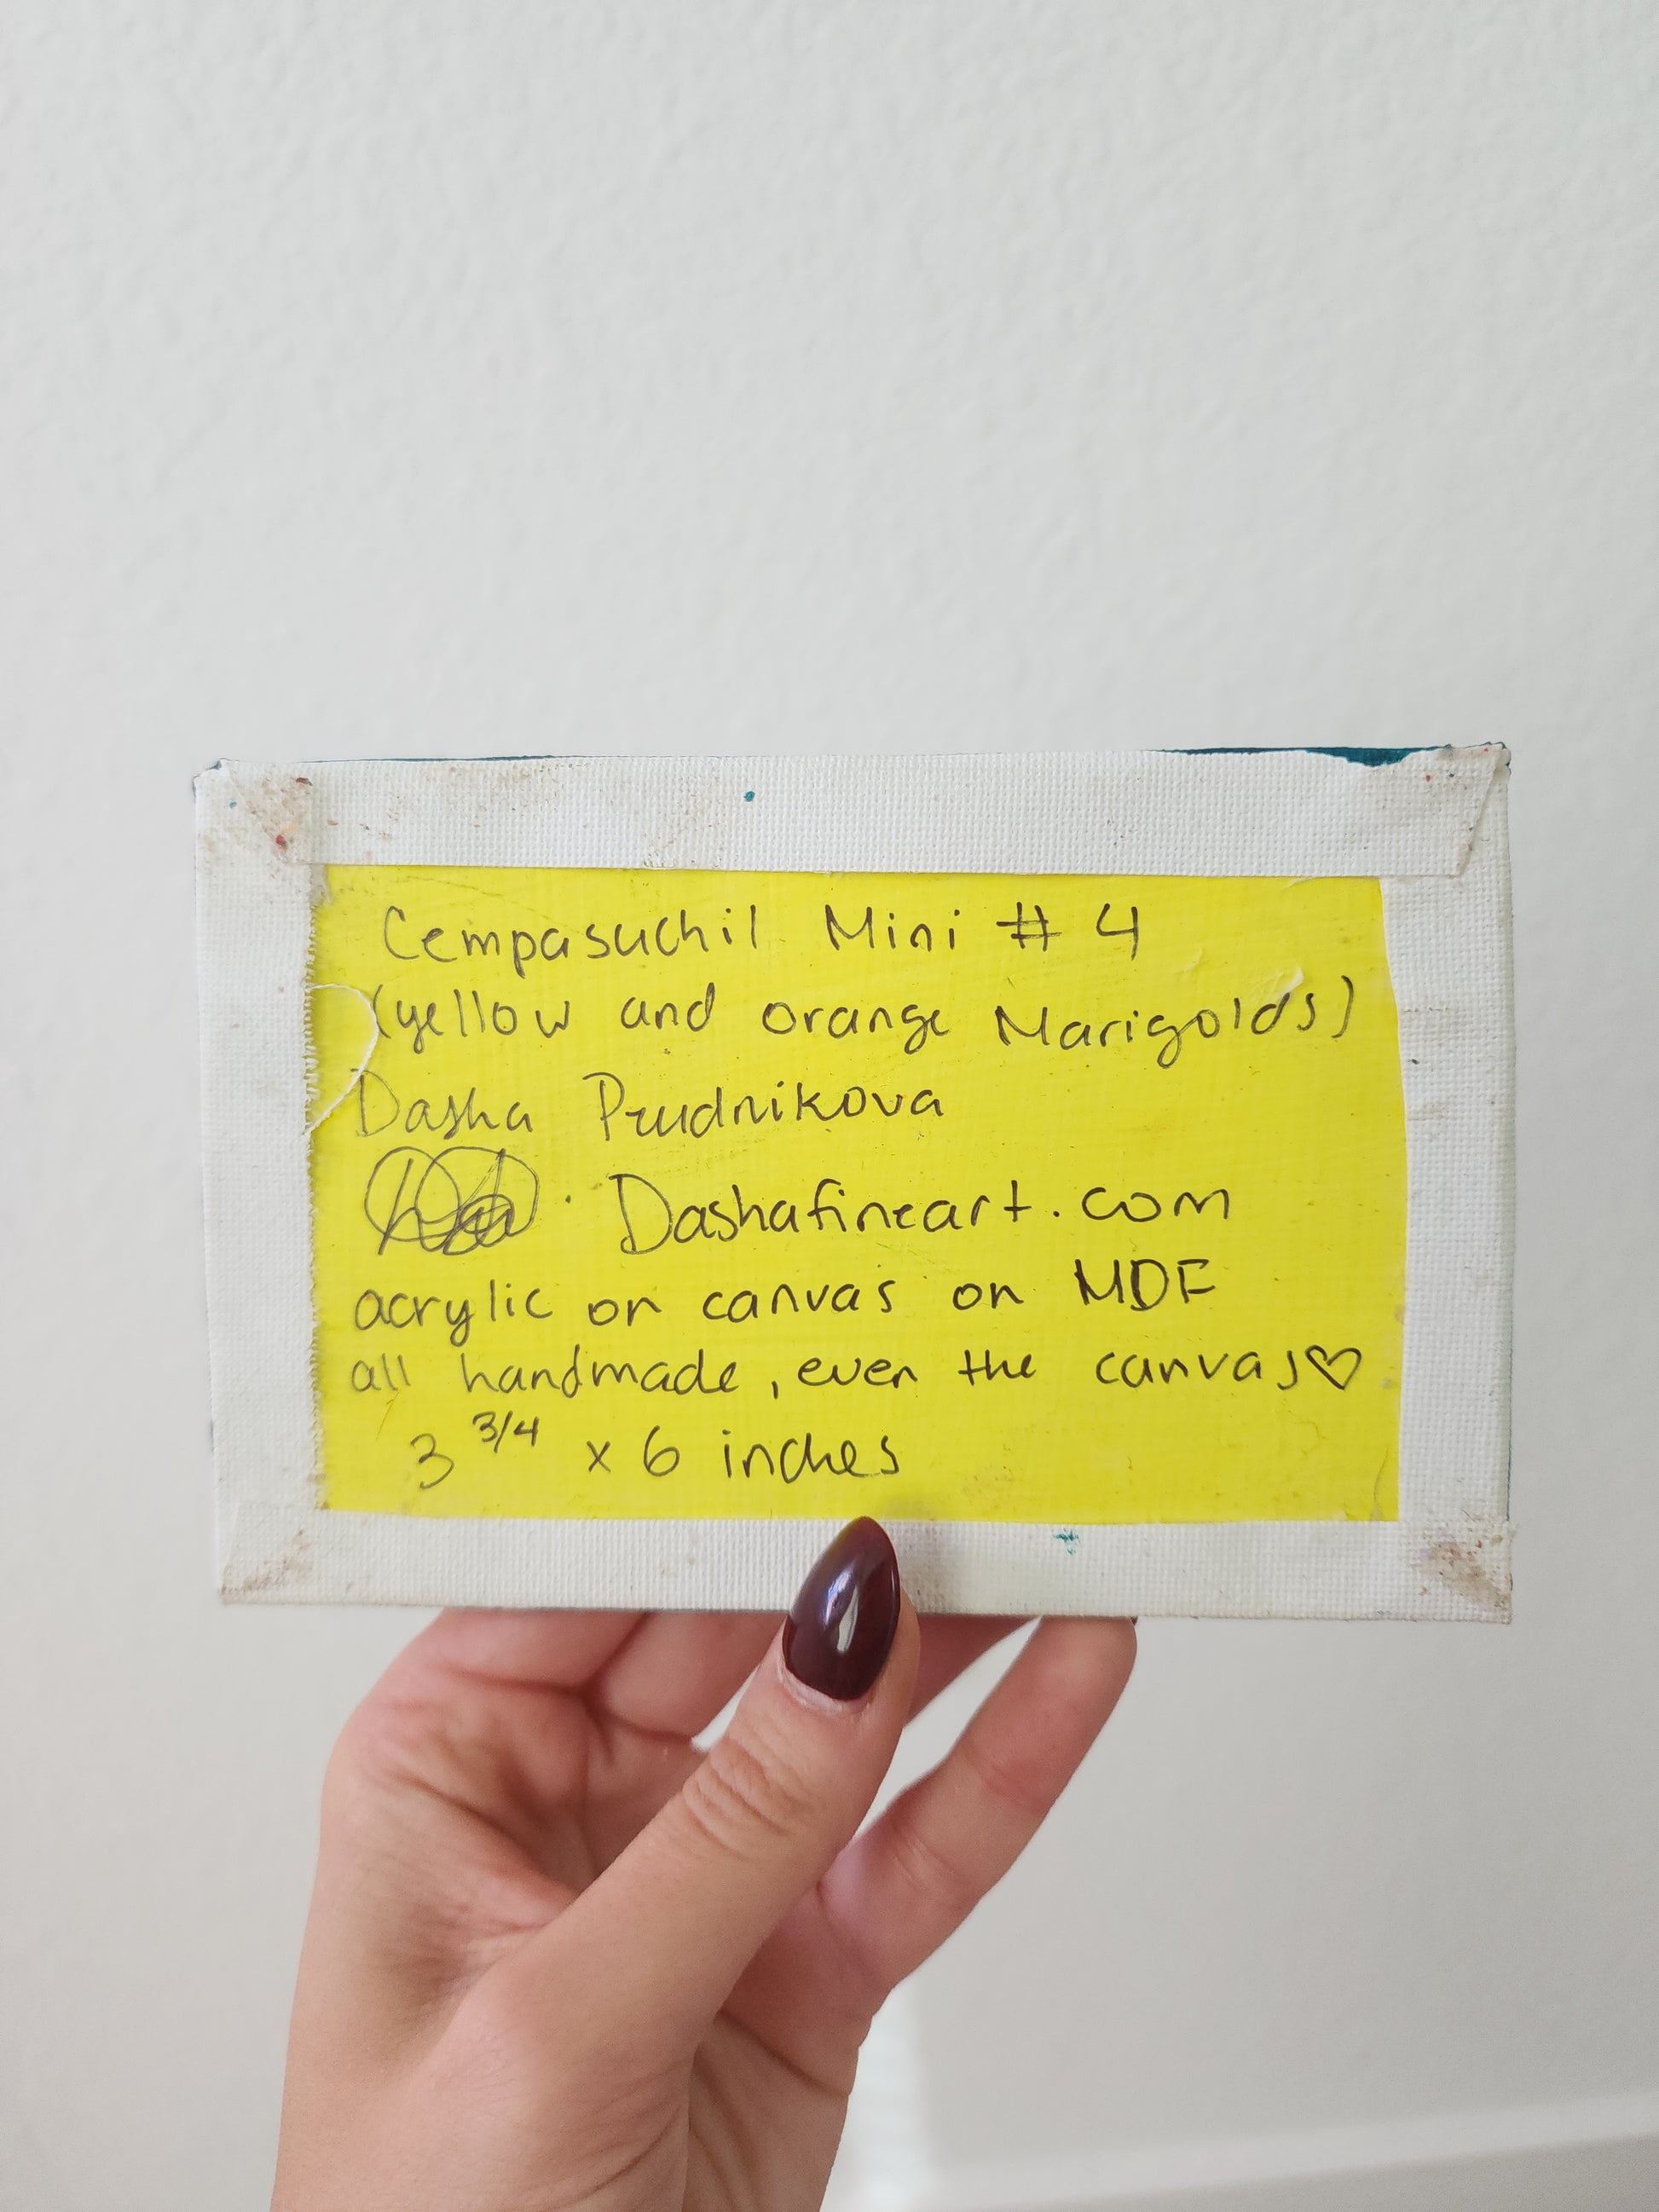 Cempasuchil Mini # 4
(yellow and orange Marigolds)
Dasha Prudnikova
Dashafineart.com
acrylic on canvas on MDF
all handmade, even the canvas♡
3 3/4 x 6 inches